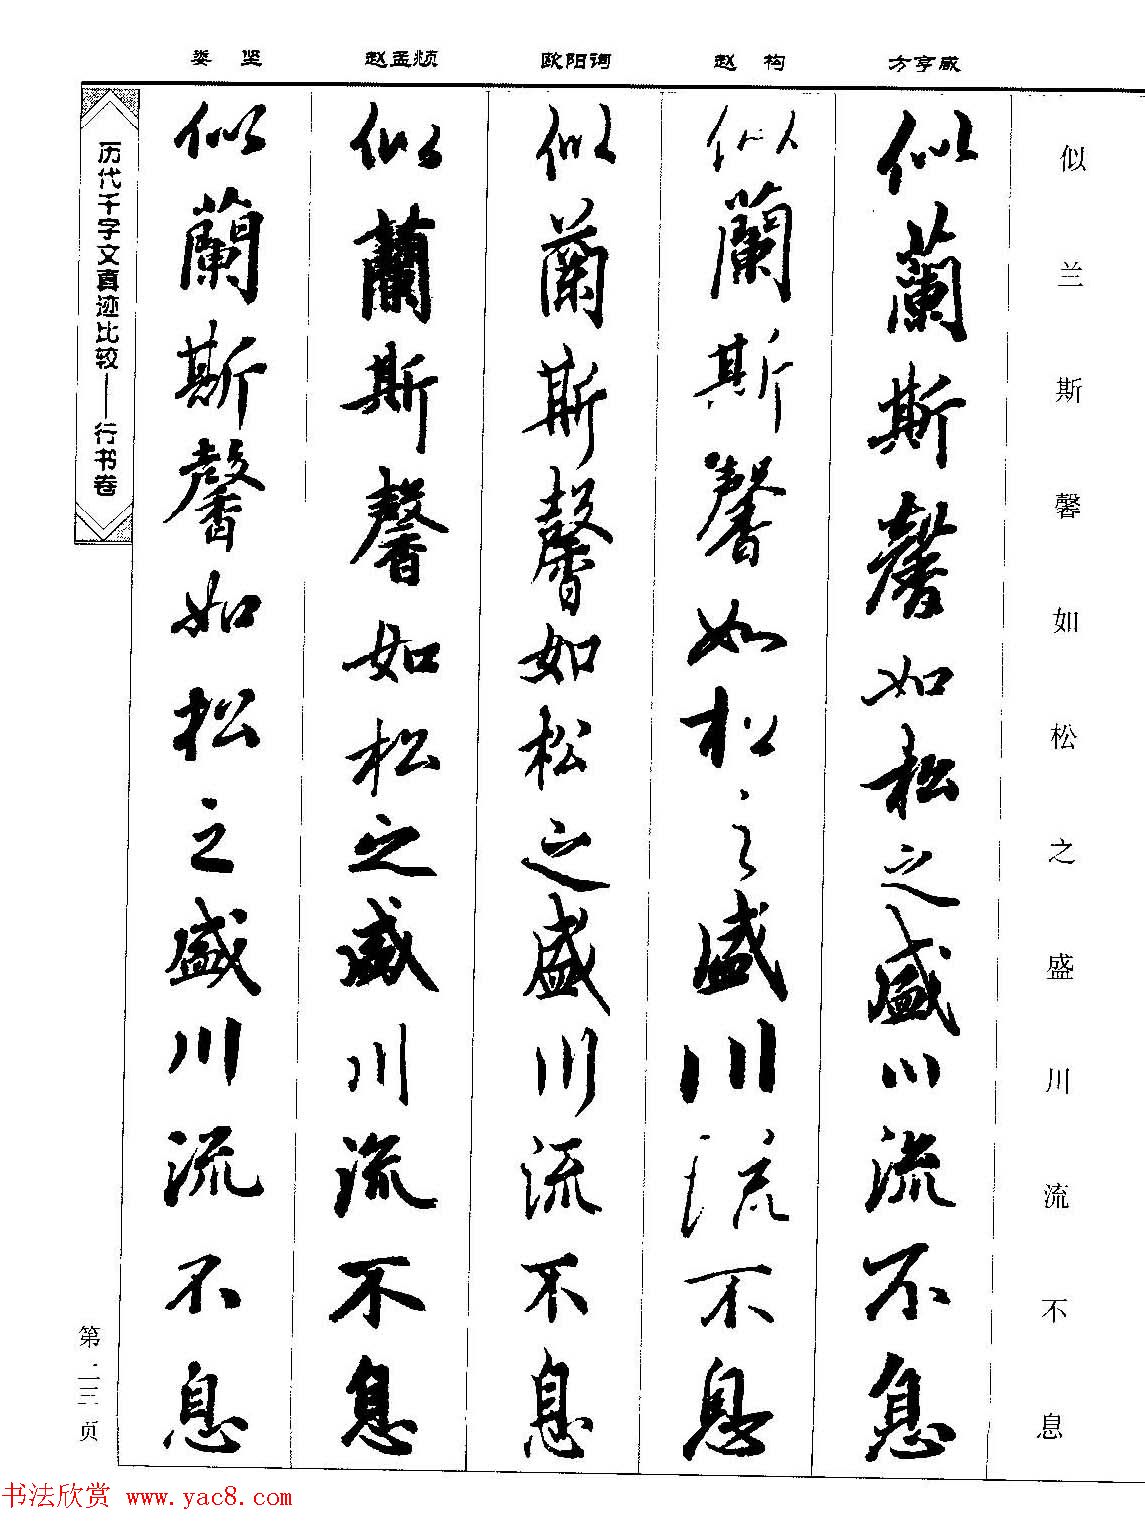 娄坚 赵孟頫 欧阳询 赵构 方孝孺
似兰斯馨如松之盛川流不息
似蘭斯馨如松之盛川流不息
似蘭斯馨如松之盛川流不息
似蘭斯馨如松之盛川流不息
似蘭斯馨如松之盛川流不息
似蘭斯馨如松之盛川流不息
历代千字文真迹比较——行书卷
第二三页
书法欣赏 www.yac8.com